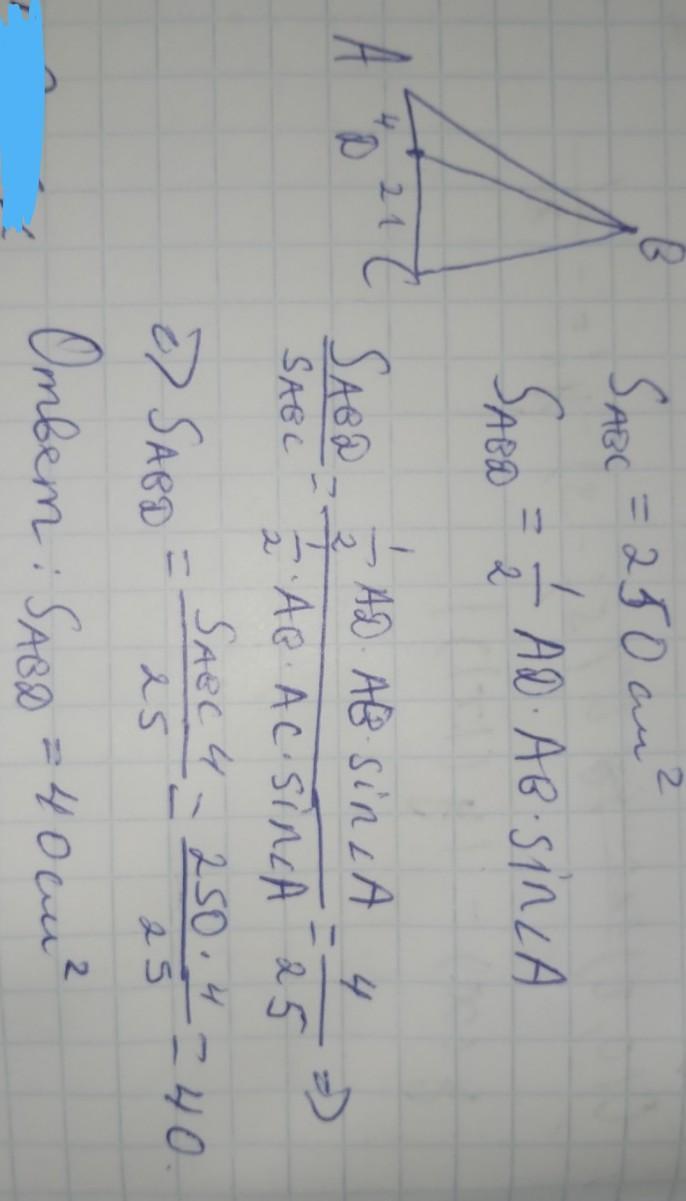 B
A 4 D 21 C
S_ABC = 250 см²
S_ABD = 1/2 AD · AB · sin∠A
S_ABD / S_ABC = (1/2 · AD · AB · sin∠A) / (1/2 · AB · AC · sin∠A) = 4/25 =>
=> S_ABD = (S_ABC 4)/25 = (250 · 4)/25 = 40.
Ответ: S_ABD = 40 см²